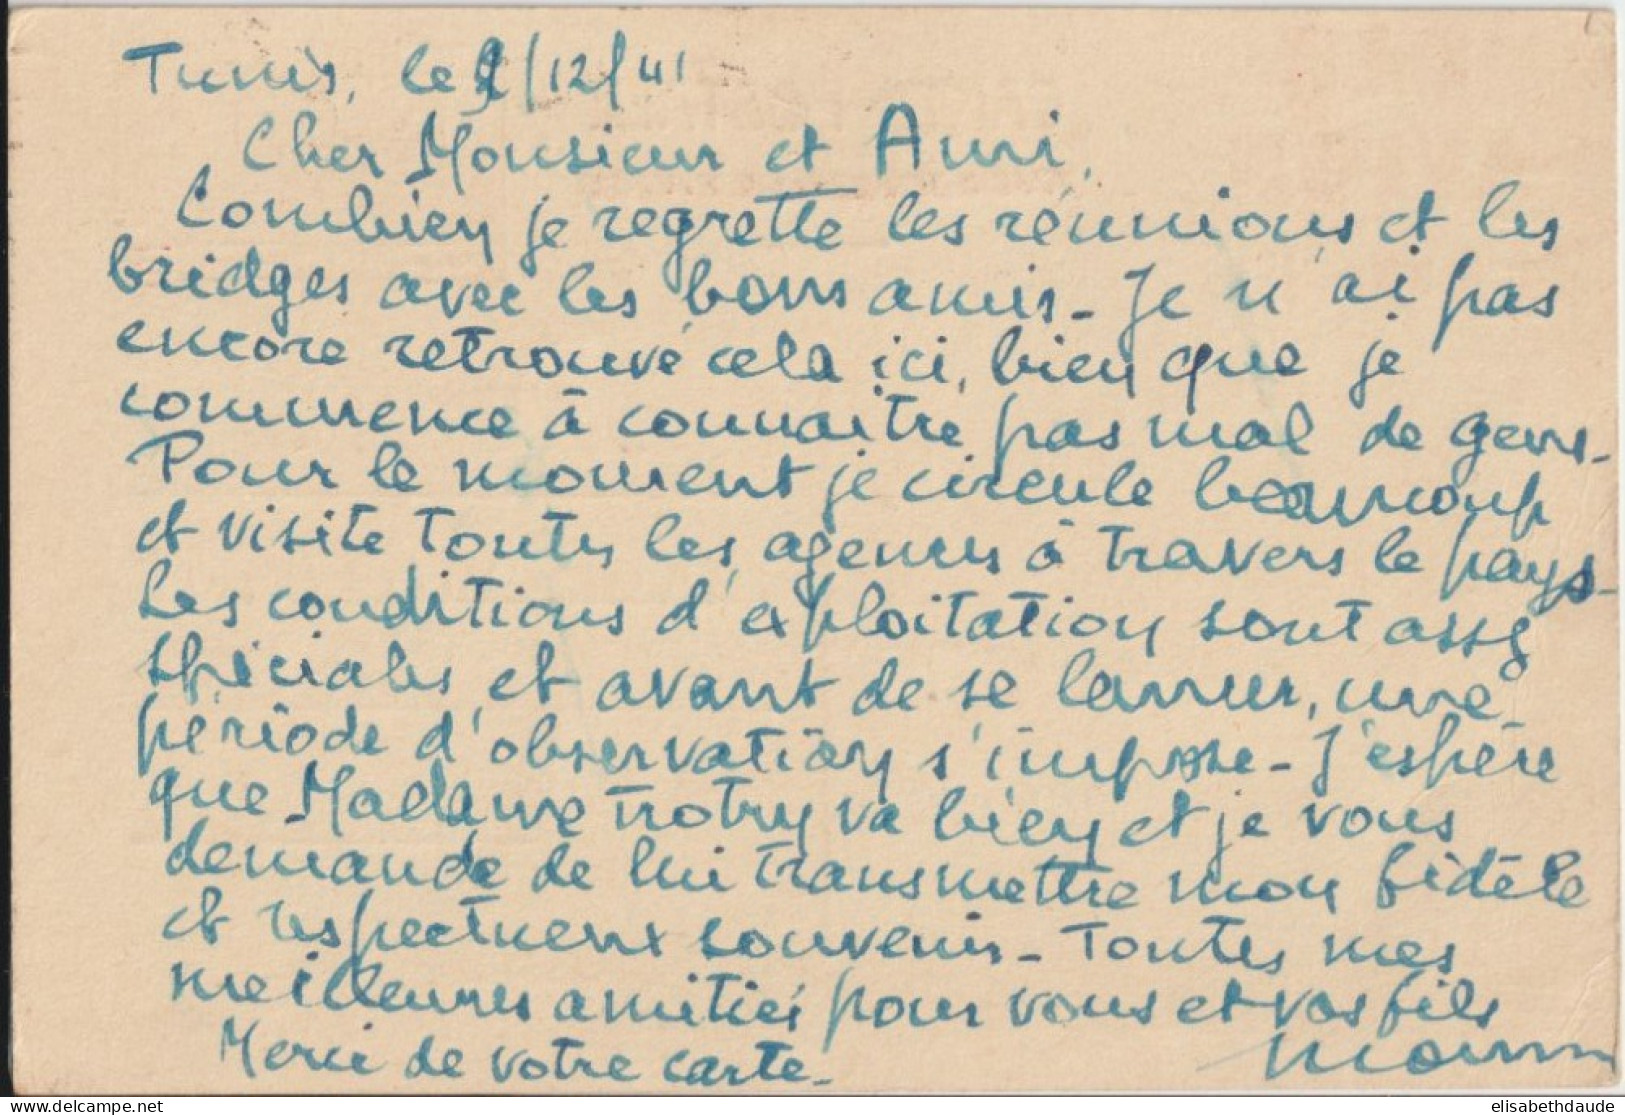 Tunis, le /12/41
Cher Monsieur et Ami,
Combien je regrette les réunions et les
bridges avec les bons amis - Je n'ai pas
encore retrouvé cela ici, bien que je
commence à connaitre pas mal de gens -
Pour le moment je circule beaucoup
et visite toutes les agences à travers le pays -
Les conditions d'exploitation sont assez
spéciales et avant de se lancer, une
période d'observation s'impose - J'espère
que Madame Trotry va bien et je vous
demande de lui transmettre mon fidèle
et respectueux souvenir - Toutes mes
meilleures amitiés pour vous et vos fils
Merci de votre carte -
elisabethdaude
www.delcampe.net